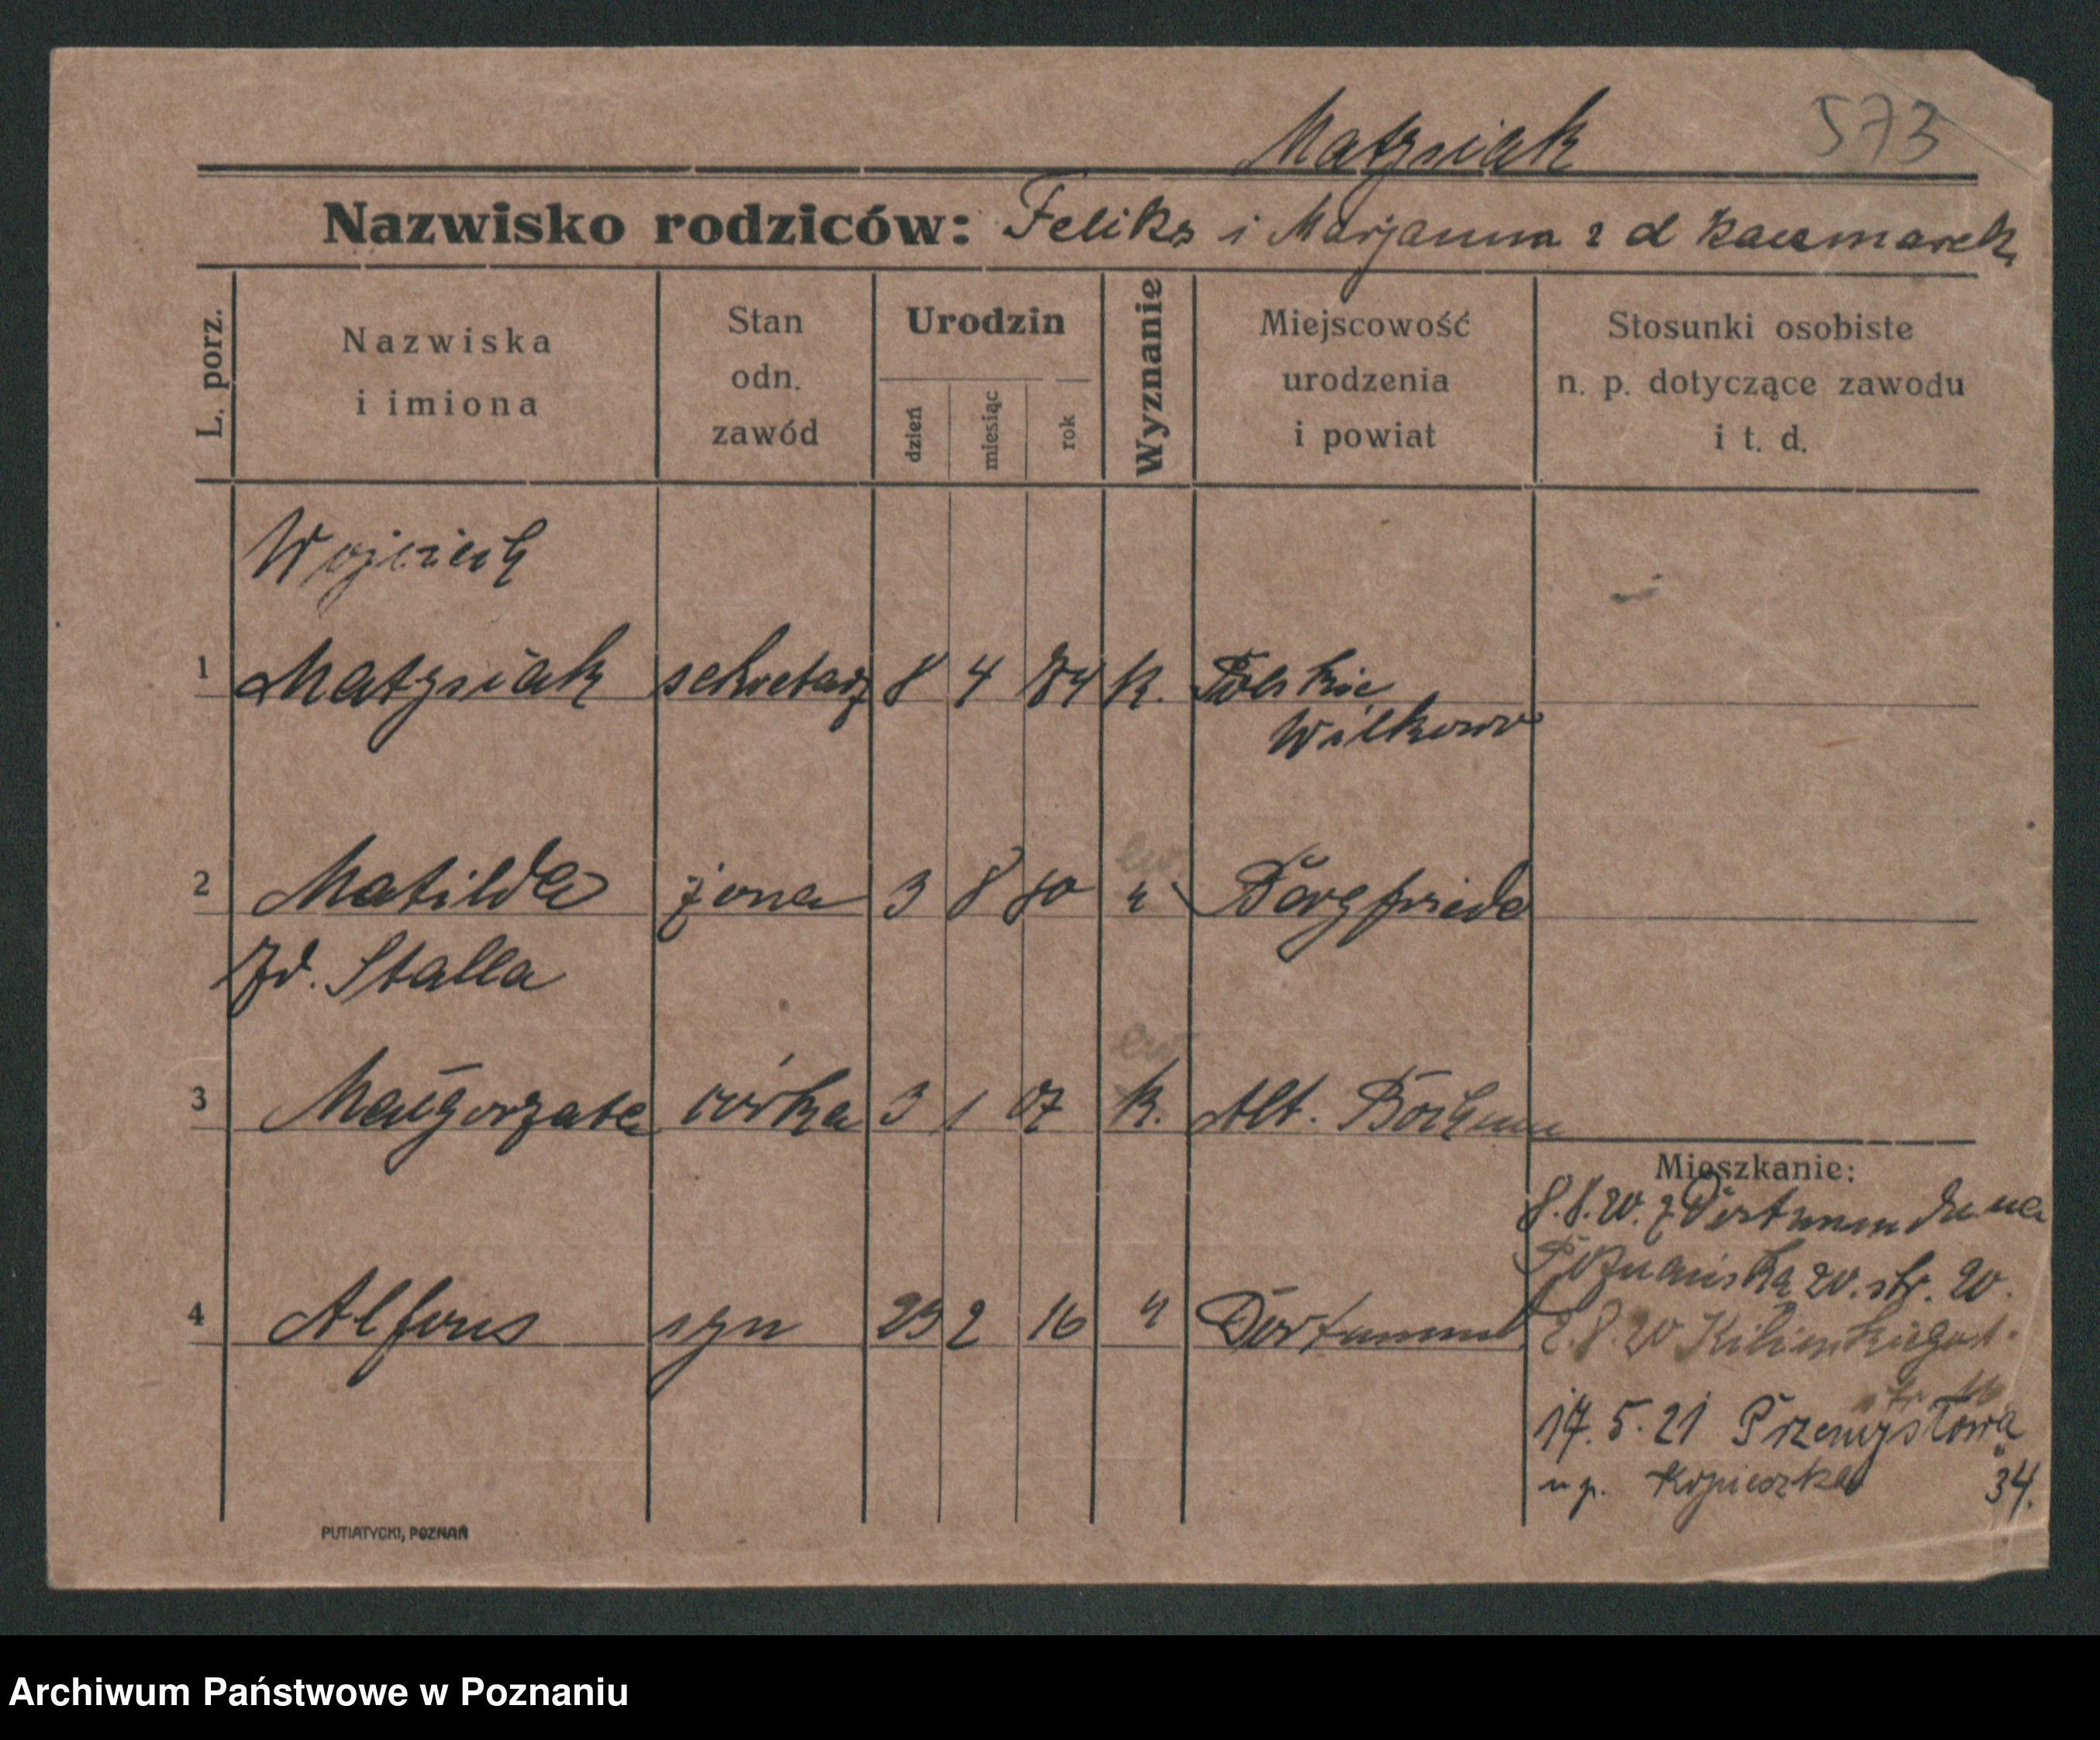 Matysiak 573
Nazwisko rodziców: Feliks i Marjanna z d Kaczmarek
L. porz.
Nazwiska
i imiona
Stan
odn.
zawód
Urodzin
dzień
miesiąc
rok
Wyznanie
Miejscowość
urodzenia
i powiat
Stosunki osobiste
n. p. dotyczące zawodu
i t. d.
Wojciech
1 Matysiak sekretarz 8 4 84 k. Polskie
Wilkowo
ew.
2 Matilda żona 3 8 80 " Borgfriede
Zd. Stalla
ew
3 Małgorzata córka 3 1 07 k. Alt. Bochum
Mieszkanie:
8.8.20. z Dortmundu na
Poznańska str. 20.
4 Alfons syn 23 2 16 " Dortmund
2.8.20
17.5.21 Przemysłowa
u p. 34.
PUTIATYCKI, POZNAŃ
Archiwum Państwowe w Poznaniu